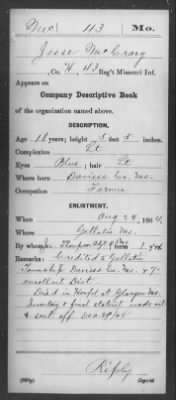 Mc 43 Mo.
Jesse McCrary
, Co. H, 43 Reg't Missouri Inf.
Appears on
Company Descriptive Book
of the organization named above.
DESCRIPTION.
Age 18 years; height 5 feet 5 inches.
Complexion Lt
Eyes Blue; hair Lt
Where born Daviess Co. Mo.
Occupation Farmer
ENLISTMENT.
When Aug 24, 1864.
Where Gallatin Mo.
By whom J. Thompson term 1 y'rs
Remarks: Credited to Gallatin
Township Daviess Co. Mo. & 7"
enrollmt Dist
Died in Hosp'l at Glasgow Mo.
Inventory & final statmt made out
& sent off Dec 29/64
Ripley
Copyist